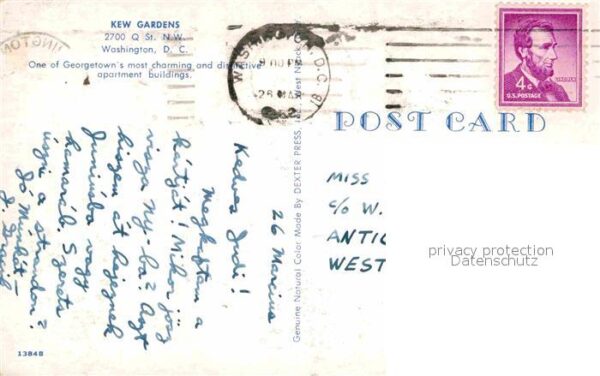 KEW GARDENS
2700 Q St. N.W.
Washington, D. C.
One of Georgetown's most charming and distinctive
apartment buildings.
WASHINGTON, D.C.
26 MAR
4¢
LINCOLN
U.S. POSTAGE
POST CARD
Genuine Natural Color Made By DEXTER PRESS, West Nyack
26 Marcius
Kedves Judi!
Megkaptam a
kártyát! Mikor jösz
vissza NY-ba? Azt
hiszem át kajznek
Juniusba vagy
hamaráb. Szerets
uszni a strandon?
Jó Mulást –
MISS
C/O W.
ANTIC
WEST
privacy protection
Datenschutz
13848